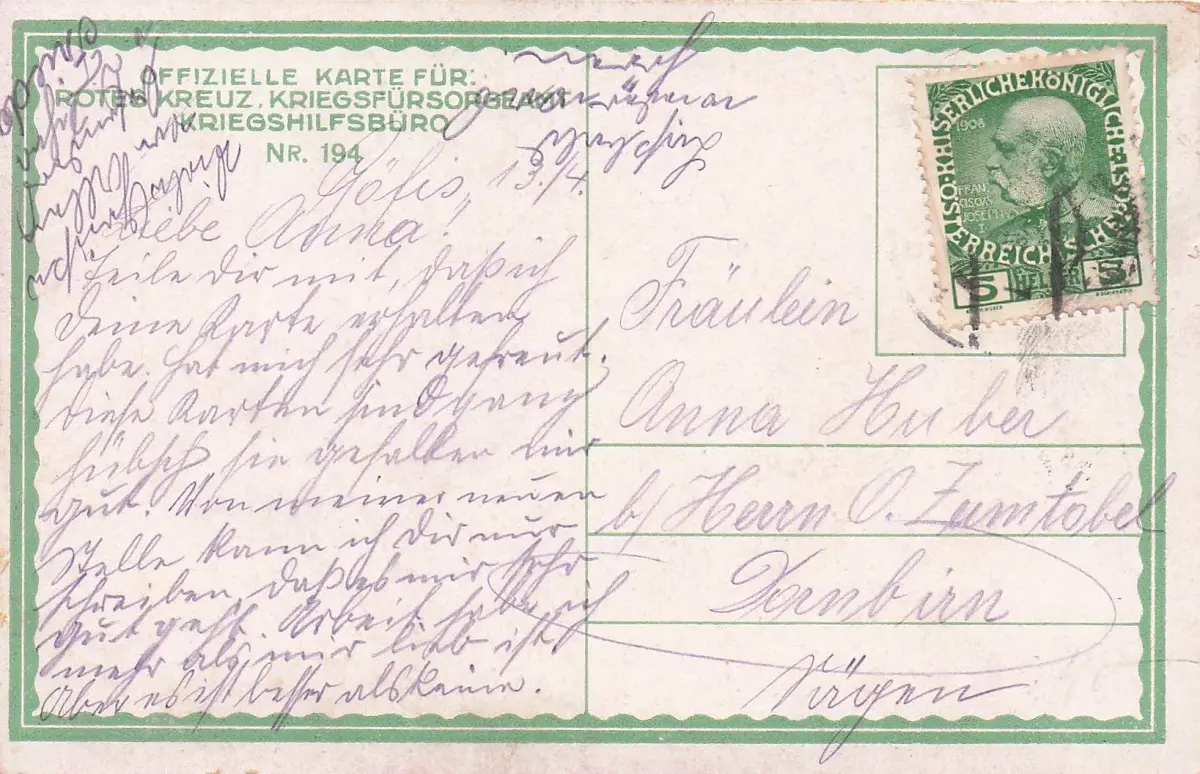 OFFIZIELLE KARTE FÜR:
ROTES KREUZ, KRIEGSFÜRSORGEAMT
KRIEGSHILFSBÜRO
NR. 194
Göfis, 13./4.
Liebe Anna!
Teile Dir mit, daß ich
Deine Karte erhalten
habe. Hat mich sehr gefreut.
Diese Karten sind ganz
hübsch, sie gefallen mir
gut. Von meiner neuen
Stelle kann ich Dir nur
schreiben, daß es mir sehr
gut geht. Arbeit habe ich
mehr als mir lieb ist.
Aber es ist besser als keine.
noch
KAISERLICHE KÖNIGLICHE
ÖSTERREICHISCHE
1908
FRAN
CISCUS
JOSEPHUS
I
5 HELLER 5
Fräulein
Anna Huber
b/ Herrn O. Zumtobel
Dornbirn
Sägen